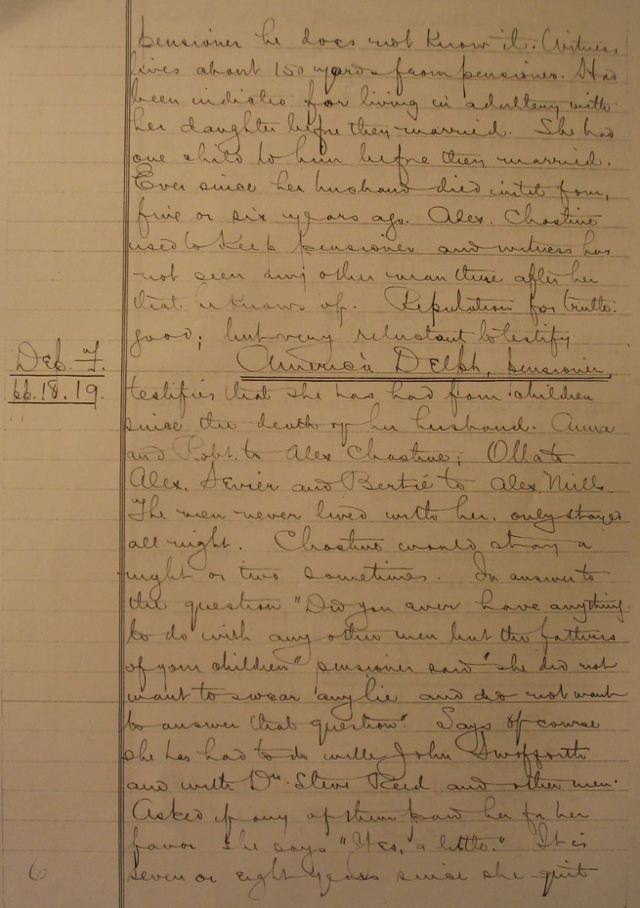 pensioner he does not know it. Witness
lives about 150 yards from pensioner. Has
been indicted for living in adultery with
her daughter before they married. She had
one child to him before they married.
Ever since her husband died until four,
five or six years ago. Alex. Chastine
used to keep pensioner and witness has
not seen any other man there after her
that he knows of. Reputation for truth:
good; but very reluctant to testify
Dep. F.
pp. 18. 19.
America Delph, pensioner,
testifies that she has had four children
since the death of her husband. Anna
and Robt. to Alex Chastine; Olla to
Alex. Sevier and Bertie to Alex Mills.
The men never lived with her, only stayed
all night. Chastine would stay a
night or two sometimes. In answer to
the question "Did you ever have anything
to do with any other men but the fathers
of your children" pensioner said "she did not
want to swear any lie and did not want
to answer that question". Says of course
she has had to do with John Swofforth
and with Dr. Steve Reid and other men.
Asked if any of them paid her for her
favor she says "Yes, a little." It is
seven or eight years since she quit
6